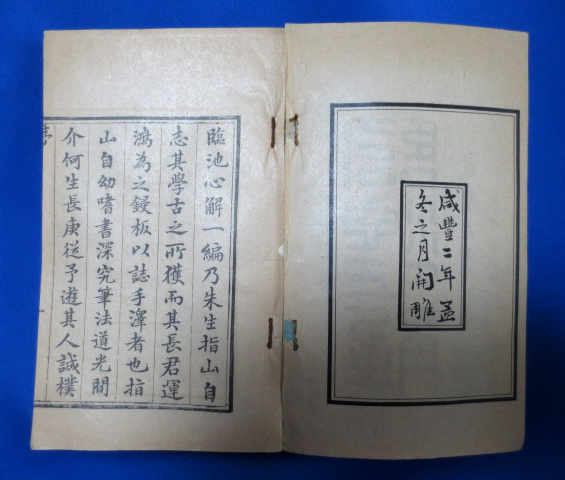 咸豐二年孟
冬之月開雕
臨池心解一編乃朱生指山自
志其學古之所獲而其長君運
鴻為之鋟板以誌手澤者也指
山自幼嗜書深究筆法道光間
介何生長庚從予遊其人誠樸
序